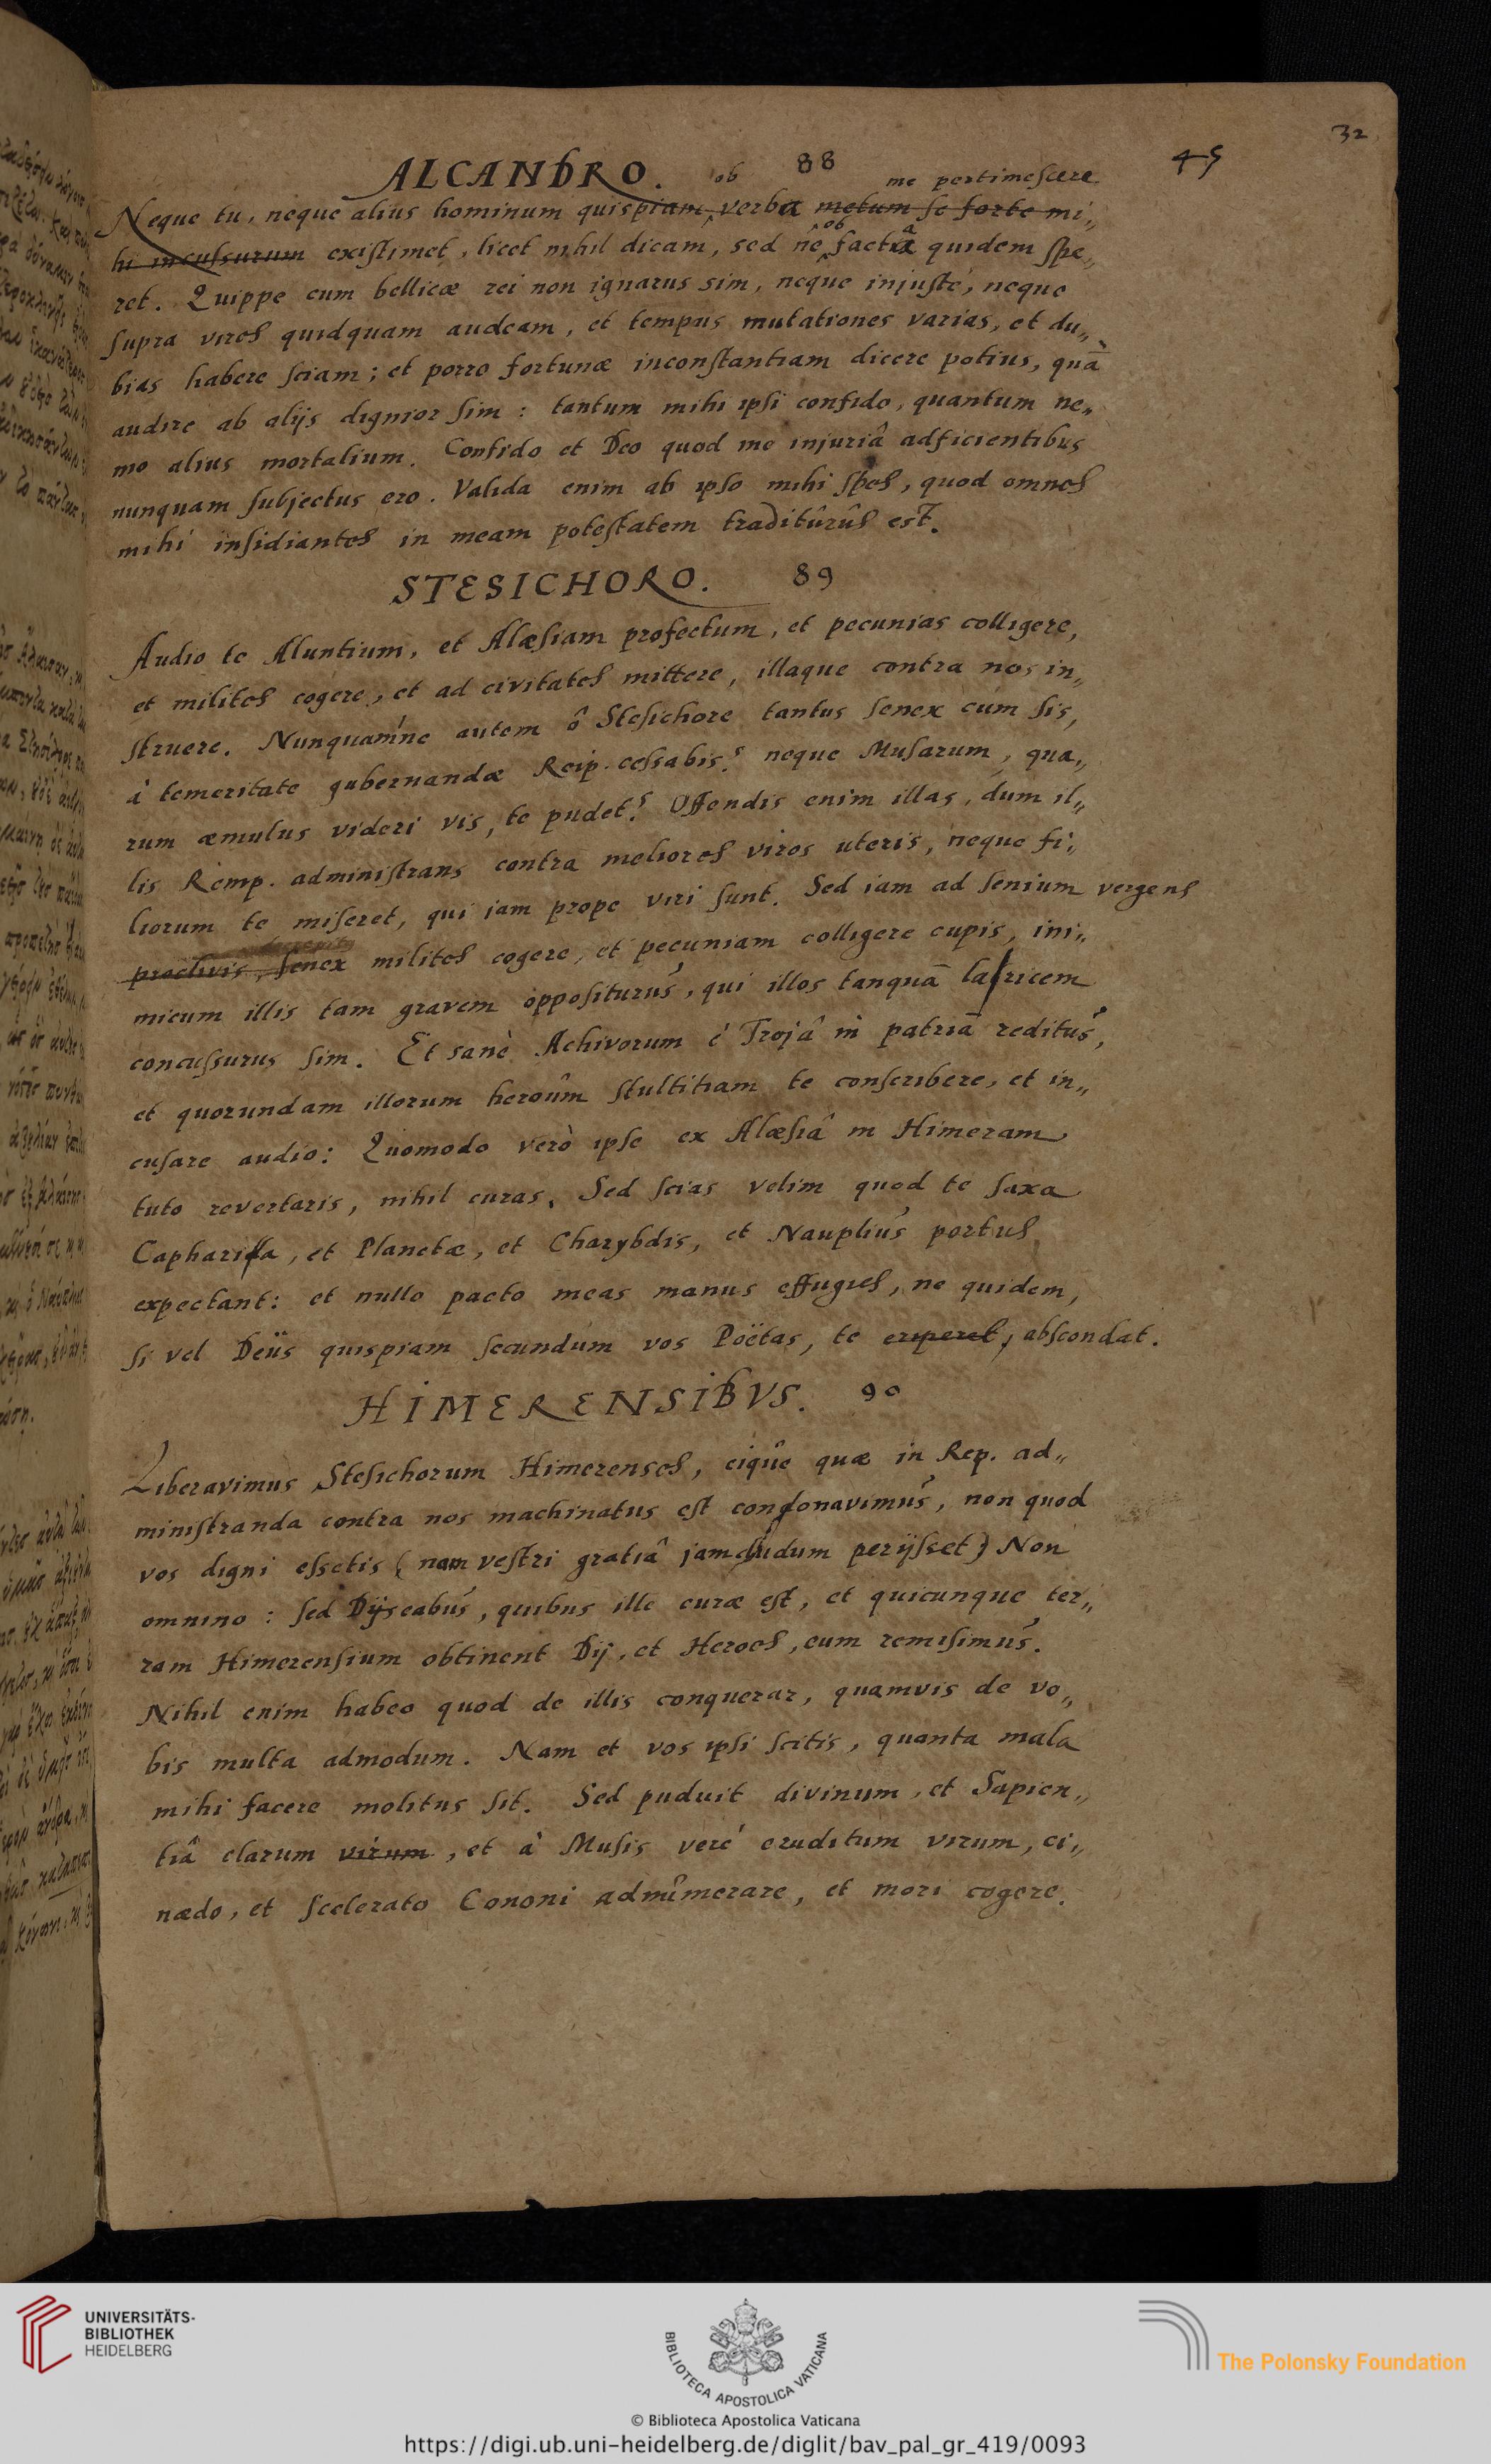 32
45
ALCANDRO. 88
ob me pertimescere
Neque tu, neque alius hominum quispiam, verba metum se forte mi„
hi incussurum existimet, licet nihil dicam, sed nē ob facta quidem spe„
ret. Quippe cum bellicæ rei non ignarus sim, neque injustè, neque
supra vires quidquam audeam, et tempus mutationes varias, et du„
bias habere sciam; et porro fortunæ inconstantiam dicere potius, quā
audire ab alijs dignior sim: tantum mihi ipsi confido, quantum ne„
mo alius mortalium. Confido et Deo quod me injuriâ adficientibus
nunquam subjectus ero. Valida enim ab ipso mihi spes, quod omnes
mihi insidiantes in meam potestatem traditûrûs est.
STESICHORO. 89
Audio te Aluntium, et Alæsiam profectum, et pecunias colligere,
et milites cogere, et ad civitates mittere, illaque contra nos in„
struere. Nunquam'ne autem ô Stesichore tantus senex cùm sis,
à temeritate gubernandæ Reip. cessabis? neque Musarum, qua„
rum æmulus videri vis, te pudet? Offendis enim illas, dum il„
lis Remp. administrans contra meliores viros uteris, neque fi„
liorum te miseret, qui jam prope viri sunt. Sed iam ad senium vergens
proclivis, senex milites cogere, et pecuniam colligere cupis, ini„
micum illis tam gravem oppositurus, qui illos tanquā laricem
concussurus sim. Et sanè Achivorum è Trojâ in patriā reditus,
et quorundam illorum heroûm stultitiam te conscribere, et in„
cusare audio: Quomodo verò ipse ex Alæsiâ in Himeram
tuto revertaris, nihil curas. Sed scias velim quod te saxa
Capharia, et Planetæ, et Charybdis, et Nauplius portus
expectant: et nullo pacto meas manus effugies, ne quidem,
si vel Deüs quispiam secundùm vos Poëtas, te eriperet, abscondat.
HIMERENSIBVS. 90
Liberavimus Stesichorum Himerenses, eiqûe quæ in Rep. ad„
ministranda contra nos machinatus est condonavimus, non quod
vos digni essetis (nam vestri gratiâ jamdudum perijsset) Non
omnino: sed Dijseabus, quibus ille curæ est, et quicunque ter„
ram Himerensium obtinent Dij, et Heroes, eum remisimus.
Nihil enim habeo quod de illis conquerar, quamvis de vo„
bis multa admodum. Nam et vos ipsi scitis, quanta mala
mihi facere molitus sit. Sed puduit divinum, et Sapien„
tiâ clarum virum, et à Musis verè eruditum virum, ci„
nædo, et scelerato Cononi adnumerare, et mori cogere.
UNIVERSITÄTS-
BIBLIOTHEK
HEIDELBERG
BIBLIOTECA APOSTOLICA VATICANA
The Polonsky Foundation
© Biblioteca Apostolica Vaticana
https://digi.ub.uni-heidelberg.de/diglit/bav_pal_gr_419/0093